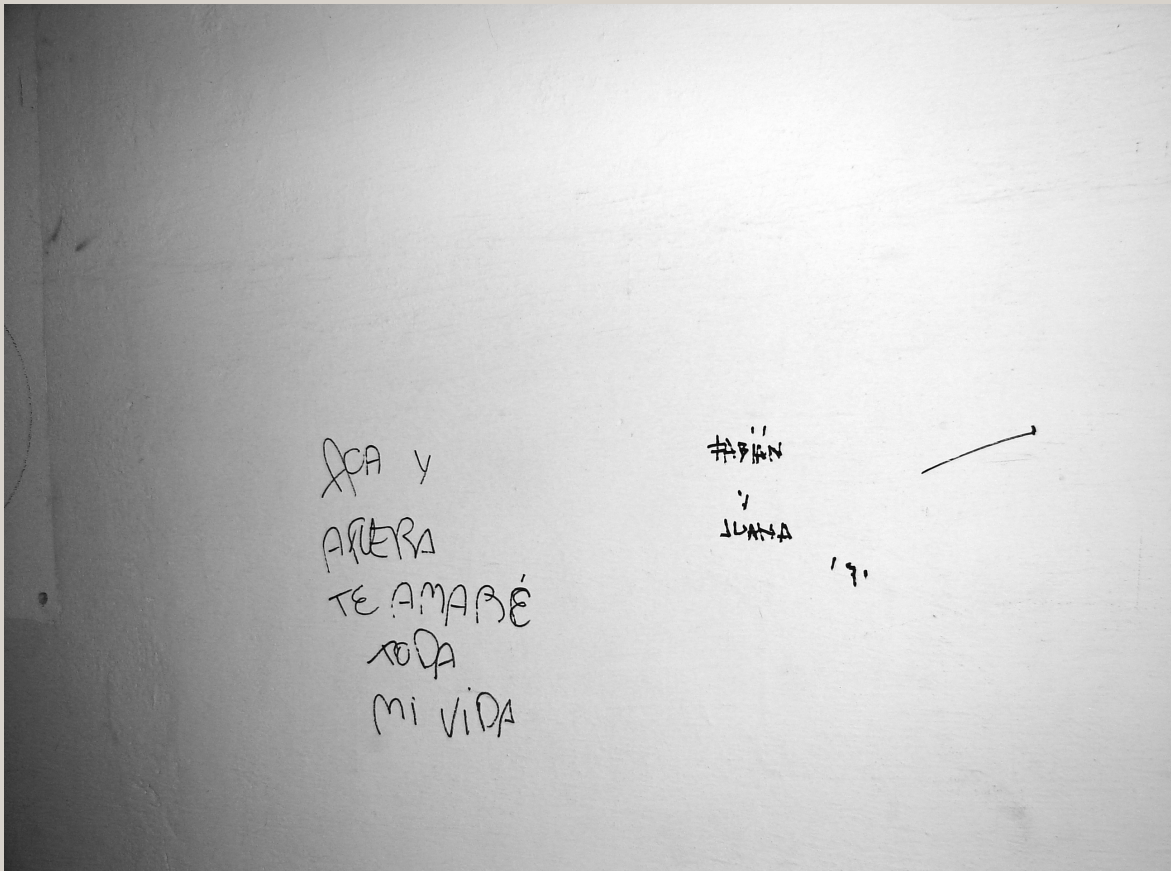 ACA Y
AFUERA
TE AMARÉ
TODA
MI VIDA
FABIÁN
Y
JUANA